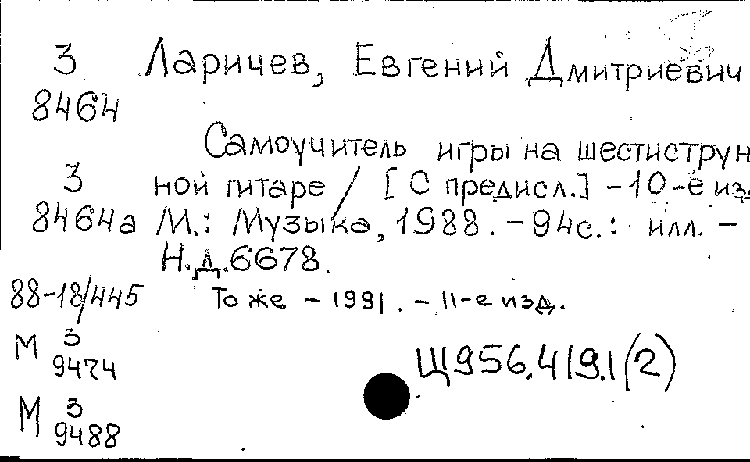 З Ларичев, Евгений Дмитриевич
8464
Самоучитель игры на шестиструн
З ной гитаре / [С предисл.] - 10-е изд
8464а М.: Музыка, 1988. - 94с.: илл. -
Н.д.6678.
88-18/445 То же - 1991. - 11-е изд.
М З
9474
Щ956.419.1(2)
М З
9488